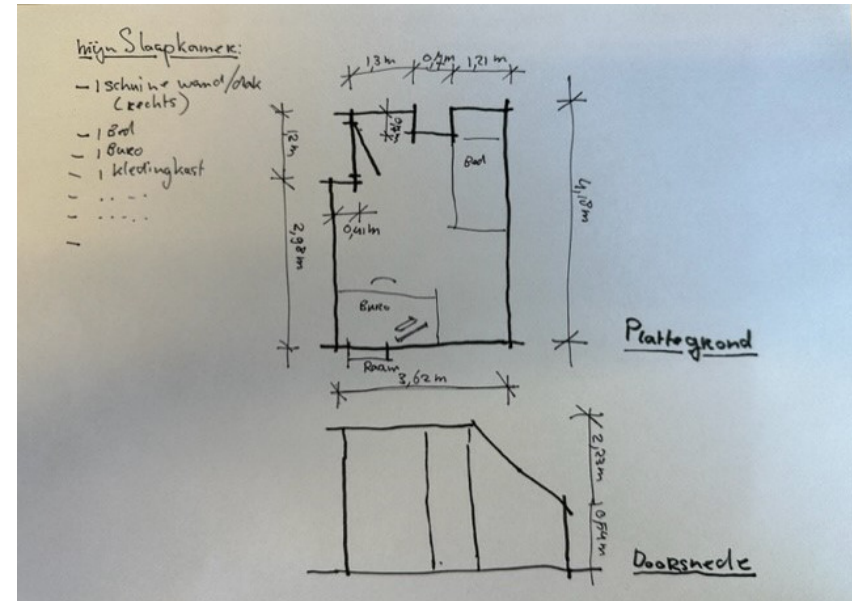 mijn Slaapkamer:
- 1 schuine wand/dak
(rechts)
- 1 Bed
- 1 Buro
- 1 kledingkast
- .....
- .....
-
1,3m 1,21m
12m
Bed
4,18m
0,41m
2,98m
Buro
Raam
3,62m
Plattegrond
2,23m
0,54m
Doorsnede